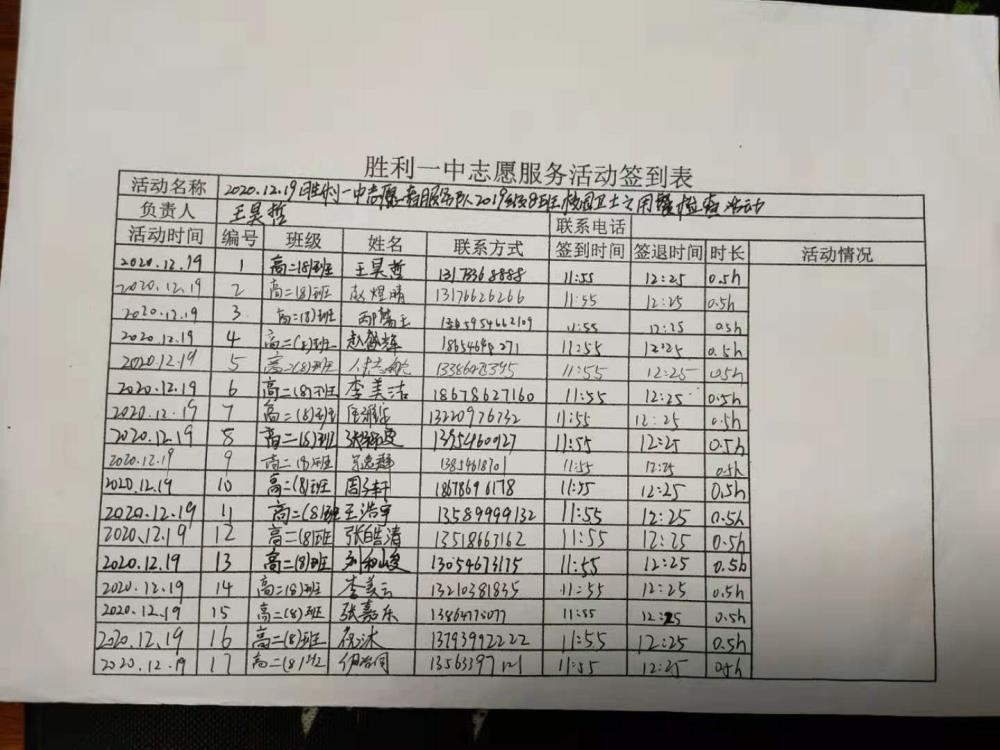 胜利一中志愿服务活动签到表
活动名称 2020.12.19胜利一中志愿者服务队2019级8班校园卫士之用餐检查活动
负责人 王昊哲 联系电话
活动时间 编号 班级 姓名 联系方式 签到时间 签退时间 时长 活动情况
2020.12.19 1 高二(8)班 王昊哲 11:55 12:25 0.5h
2020.12.19 2 高二(8)班 赵煜晴 13176626266 11:55 12:25 0.5h
2020.12.19 3 高二(8)班 11:55 12:25 0.5h
2020.12.19 4 高二(8)班 11:55 12:25 0.5h
2020.12.19 5 高二(8)班 11:55 12:25 0.5h
2020.12.19 6 高二(8)班 李美洁 18678627160 11:55 12:25 0.5h
2020.12.19 7 高二(8)班 13220976732 11:55 12:25 0.5h
2020.12.19 8 高二(8)班 11:55 12:25 0.5h
2020.12.19 9 高二(8)班 11:55 12:25 0.5h
2020.12.19 10 高二(8)班 周子轩 11:55 12:25 0.5h
2020.12.19 11 高二(8)班 王浩宇 13589999132 11:55 12:25 0.5h
2020.12.19 12 高二(8)班 张皓清 13518667162 11:55 12:25 0.5h
2020.12.19 13 高二(8)班 刘和峻 13054673175 11:55 12:25 0.5h
2020.12.19 14 高二(8)班 李美云 13210381835 11:55 12:25 0.5h
2020.12.19 15 高二(8)班 张嘉乐 11:55 12:25 0.5h
2020.12.19 16 高二(8)班 13793992222 11:55 12:25 0.5h
2020.12.19 17 高二(8) 11:55 12:25 0.5h